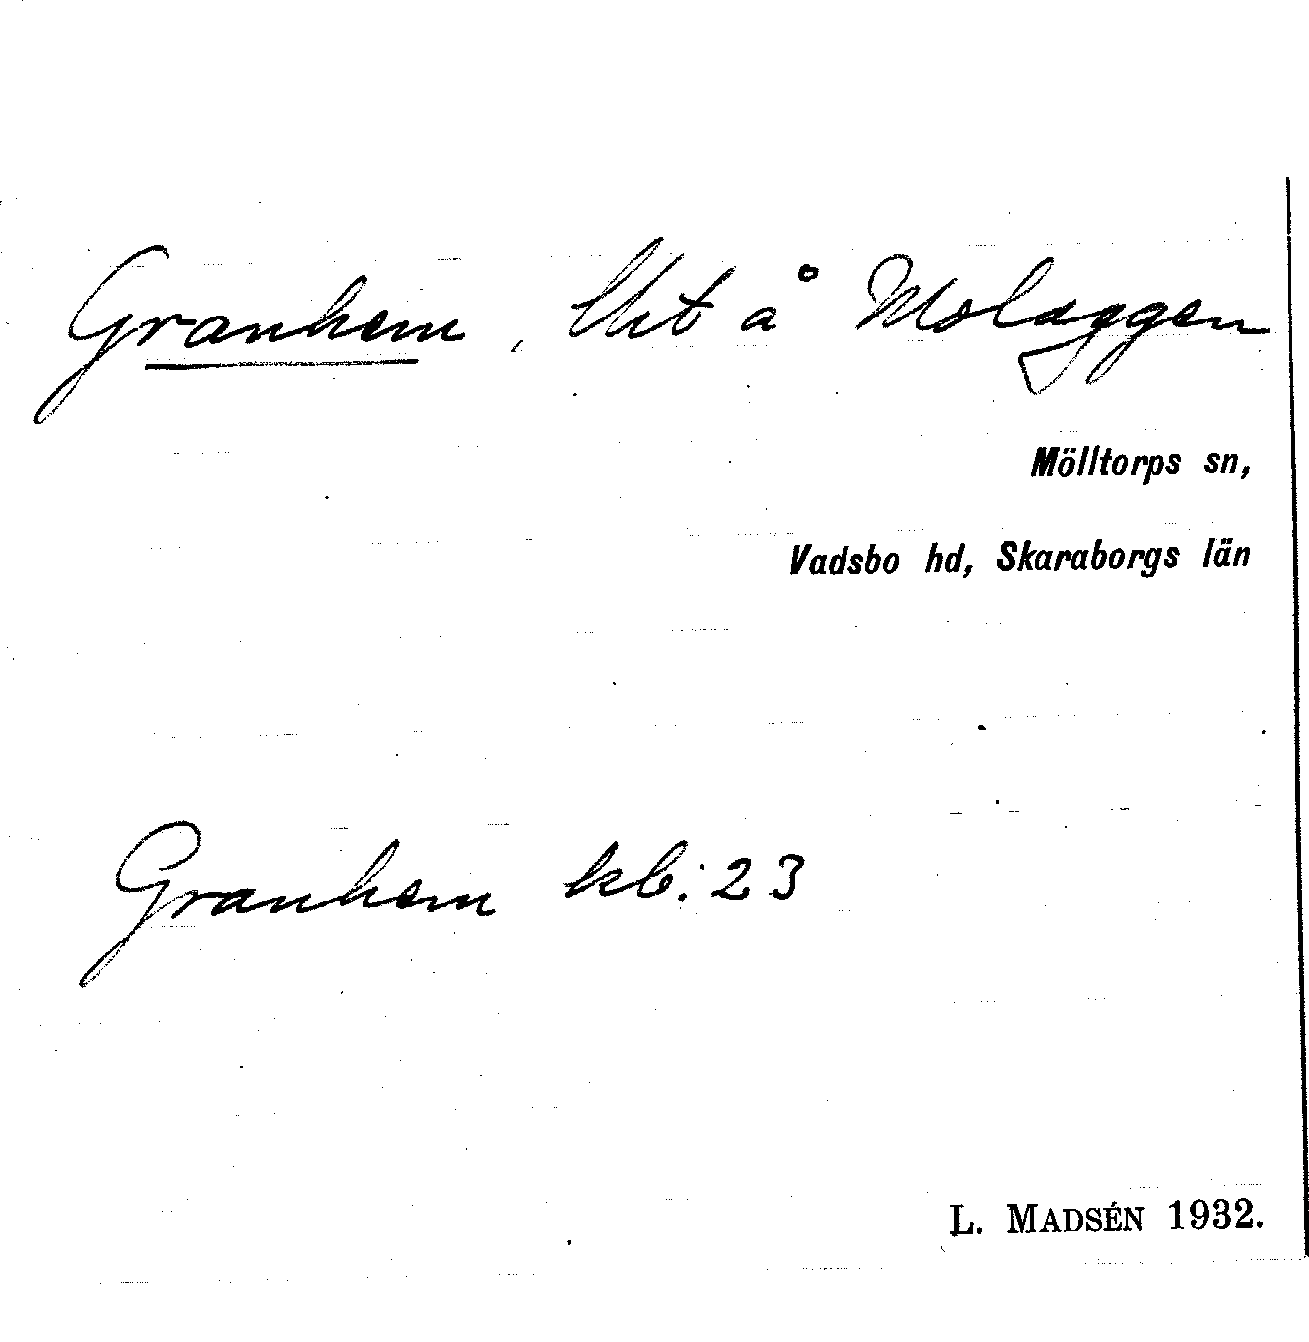 Granhem, lht å Moläggen
Mölltorps sn,
Vadsbo hd, Skaraborgs län
Granhem kb: 23
L. MADSÉN 1932.